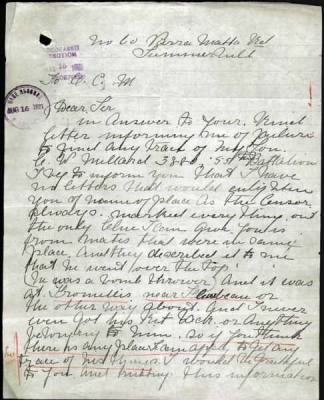 No 60 Berra Matta Rd
Summer Hill
AUG 16 1921
To O. C. M
Dear Sir
in Answer to Your Kind
letter informing me of failure
to find any trace of My Son
Battalion
I beg to inform you that I have
no letters that would enlighten
You of name of place As the Censor
Always marked every thing out
the only Clue I can give You is
from mates that were in same
place And they described it to me
that he went over the top
he was a bomb thrower And it was
at Fromelles near
the other way about And I never
even got his kit back or Anything
belonging to him so if you think
there is any place I can apply to get any
trace of his things I would be Grateful
to You And trusting this information